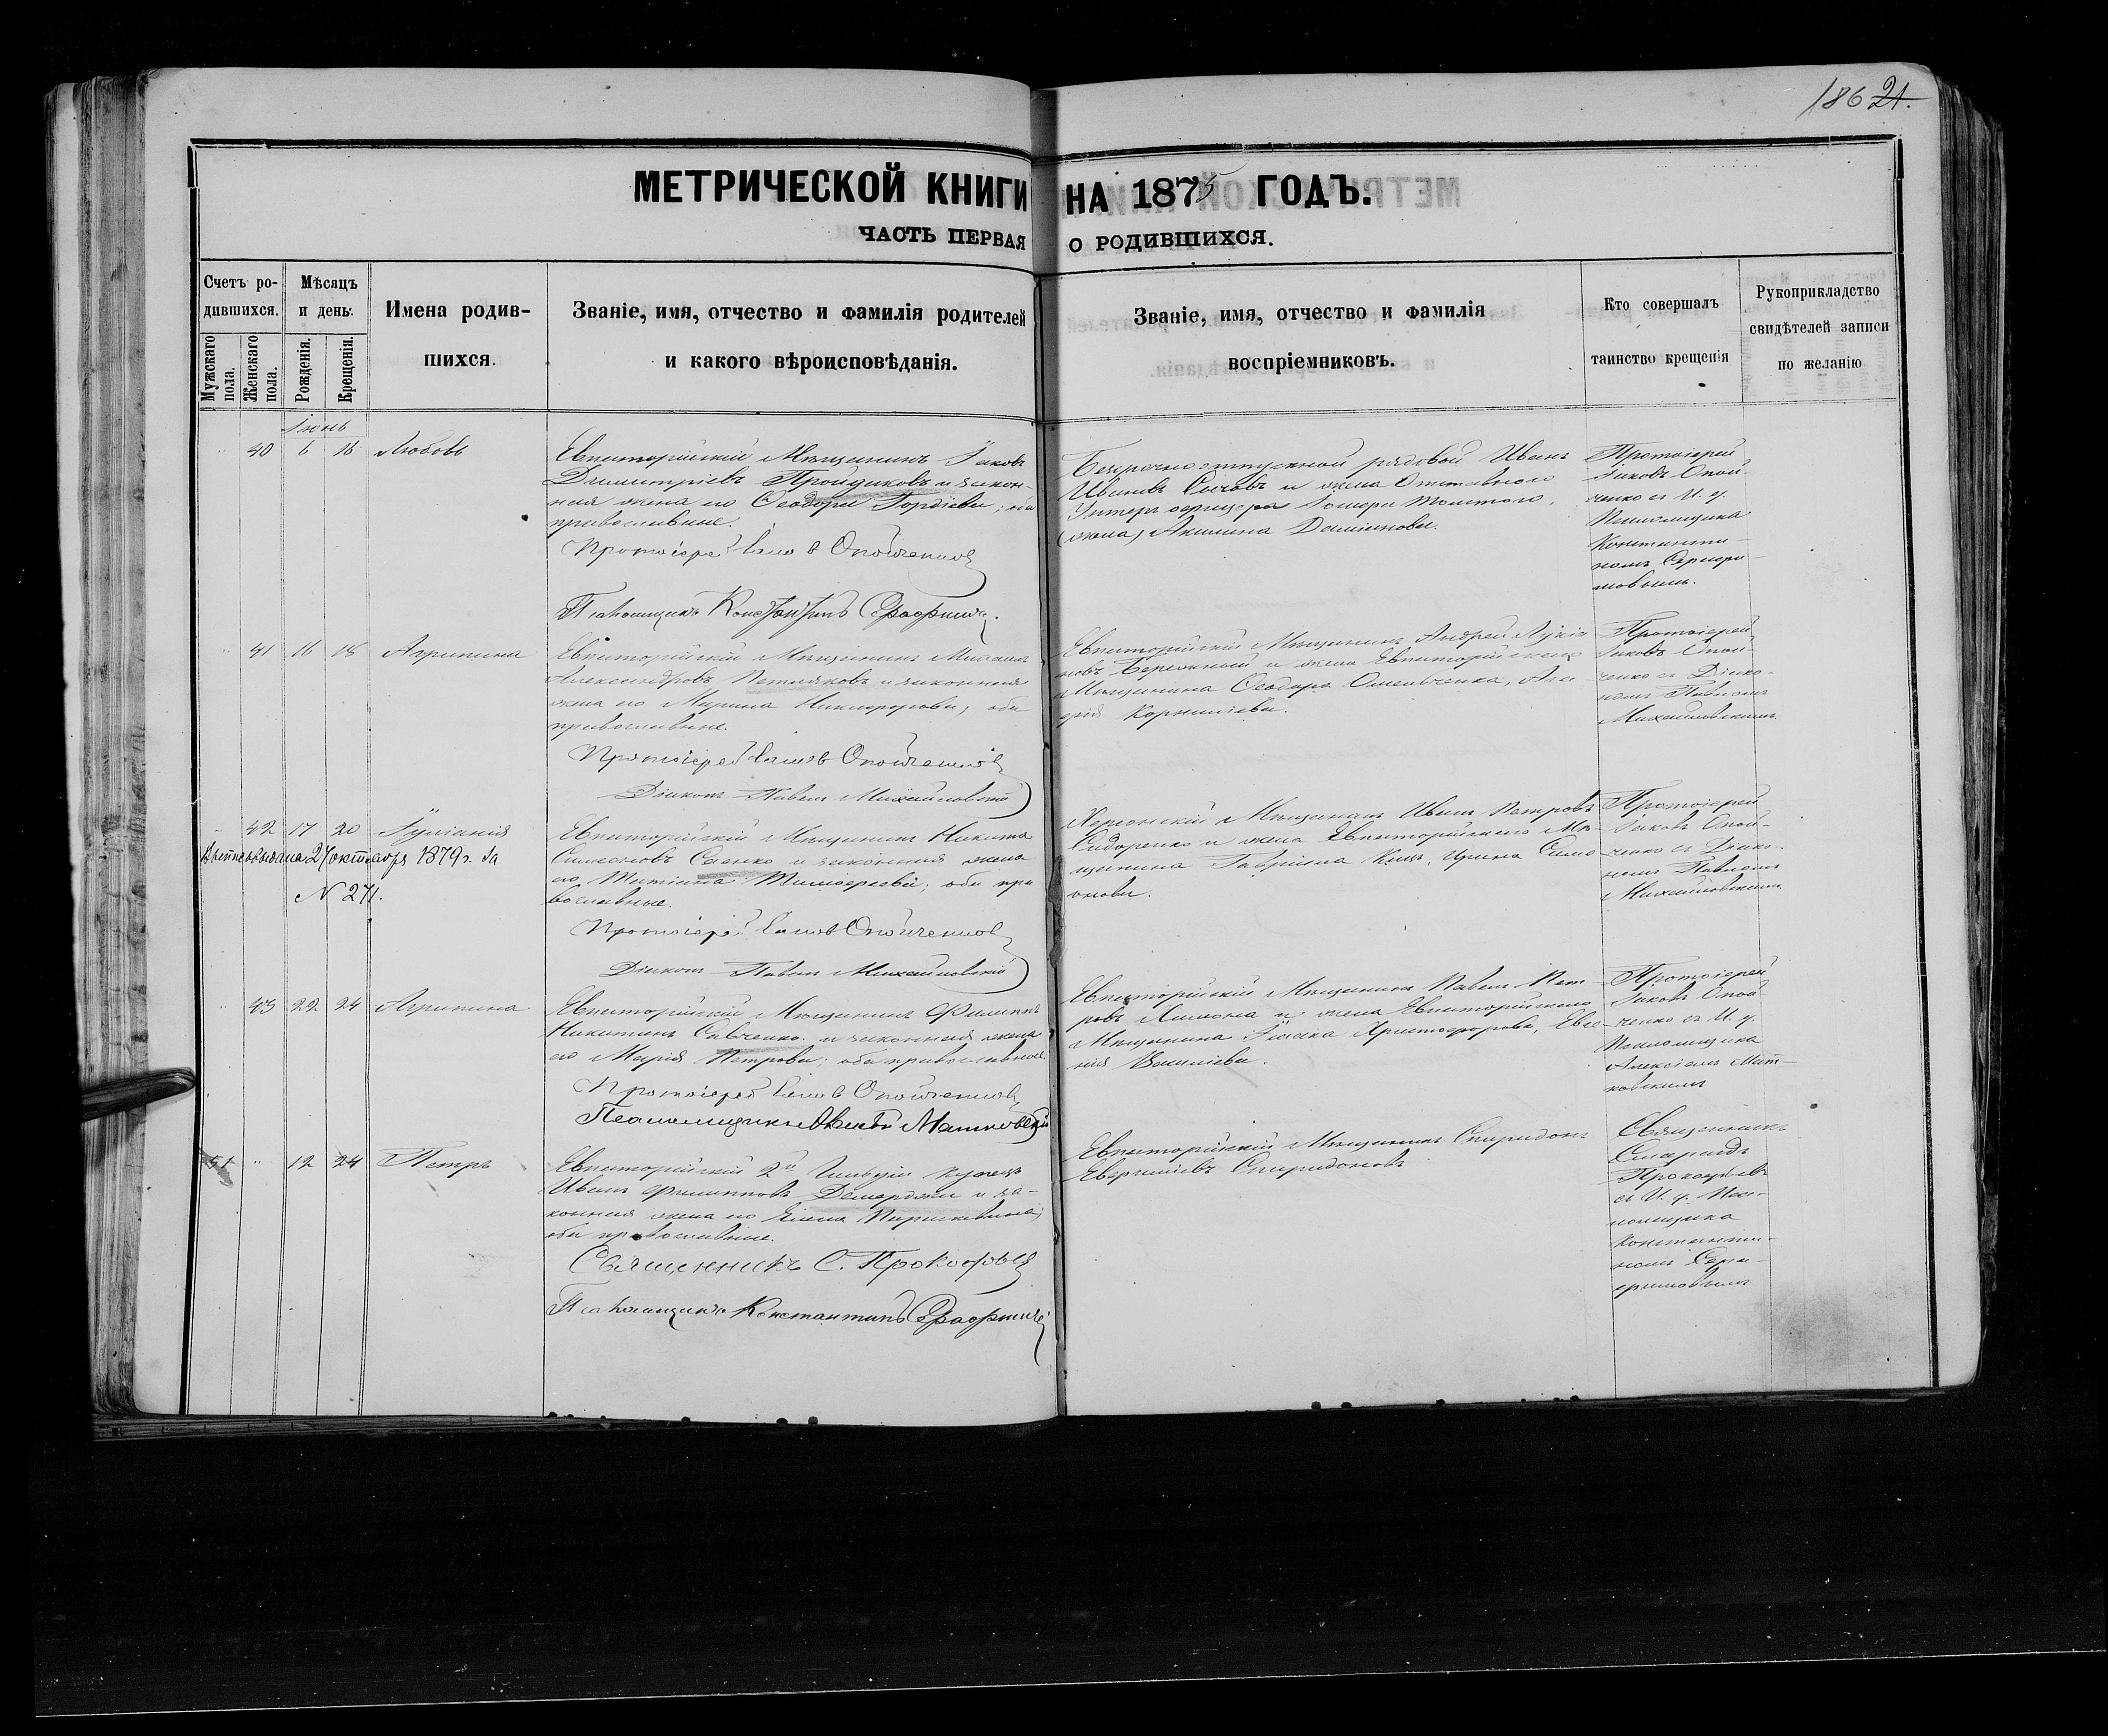 186 21.
МЕТРИЧЕСКОЙ КНИГИ НА 1875 ГОДЪ.
ЧАСТЬ ПЕРВАЯ О РОДИВШИХСЯ.
Счетъ ро-
дившихся.
Мужскаго пола.
Женскаго пола.
Мѣсяцъ
и день.
Рожденія.
Крещенія.
Имена родив-
шихся.
Званіе, имя, отчество и фамилія родителей
и какого вѣроисповѣданія.
Званіе, имя, отчество и фамилія
воспріемниковъ.
Кто совершалъ
таинство крещенія
Рукоприкладство
свидѣтелей записи
по желанію
Іюнь
40 6 16 Любовь
Евпаторійскій Мѣщанинъ Іаковъ
Димитріевъ Пройдаковъ и закон-
ная жена его Ѳеодора Гордіева; оба
православные.
Протоіерей Іаковъ Опойченков
Псаломщикъ Константинъ Серафимов.
Безсрочноотпускной рядовой Иванъ
Ивановъ Сычовъ и жена Отставнаго
Унтеръ офицера Толстого,
(жена) Акилина Даміанова.
Протоіерей
Іаковъ Опой-
ченко съ И. д.
Псаломщика
Константи-
номъ Серафи-
мовымъ.
41 16 18 Агрипина
Евпаторійскій Мѣщанинъ Михаилъ
Александровъ Петляковъ и законная
жена его Марина Никифорова, оба
православные.
Протоіерей Іаковъ Опойченков
Діаконъ Павелъ Михайловскій
Евпаторійскій Мѣщанинъ Андрей Лукія
новъ Бережный и жена Евпаторійскаго
Мѣщанина Ѳеодора Омельченка,
Корнилiева.
Протоіерей
Іаковъ Опой-
ченко съ Діако-
номъ Павломъ
Михайловскимъ.
42 17 20 Іуліанія
выдана 27 октября 1879 г. За
N 271.
Евпаторійскій Мѣщанинъ Никита
Симеоновъ Саенко и законная жена
его Татіана Тимоѳеева; оба пра
вославные.
Протоіерей Іаковъ Опойченков
Діаконъ Павелъ Михайловскій
Херсонскій Мѣщанинъ Иванъ Петровъ
Сидоренко и жена Евпаторійскаго Мѣ-
щанина Гавріила Кецъ, Ирина Симе
онова.
Протоіерей
Іаковъ Опой-
ченко съ Діако-
номъ Павломъ
Михайловскимъ.
43 22 24 Агрипина
Евпаторійскій Мѣщанинъ Филиппъ
Никитинъ Савченко и законная жена
его Марія Петрова; оба православные.
Протоіерей Іаковъ Опойченков
Псаломщикъ Алексѣй Матковскій
Евпаторійскій Мѣщанинъ Павелъ Пет-
ровъ и жена Евпаторійскаго
Мѣщанина Христофорова, Евге
нія Васильева.
Протоіерей
Іаковъ Опой-
ченко съ И. д.
Псаломщика
Алексіемъ Мат-
ковскимъ
51 " 12 24 Петръ
Евпаторійскій 2й Гильдіи купецъ
Иванъ Филипповъ Демерджи и за-
конная жена его Елена Параскевина;
оба православные.
Священникъ С. Прокофьев
Псаломщикъ Константинъ Серафимов
Евпаторійскій Мѣщанинъ Спиридонъ
Спиридоновъ
Священникъ
Смарагдъ
Прокофьевъ
съ И. д. Пса-
ломщика
Константи-
номъ Сера-
фимовымъ